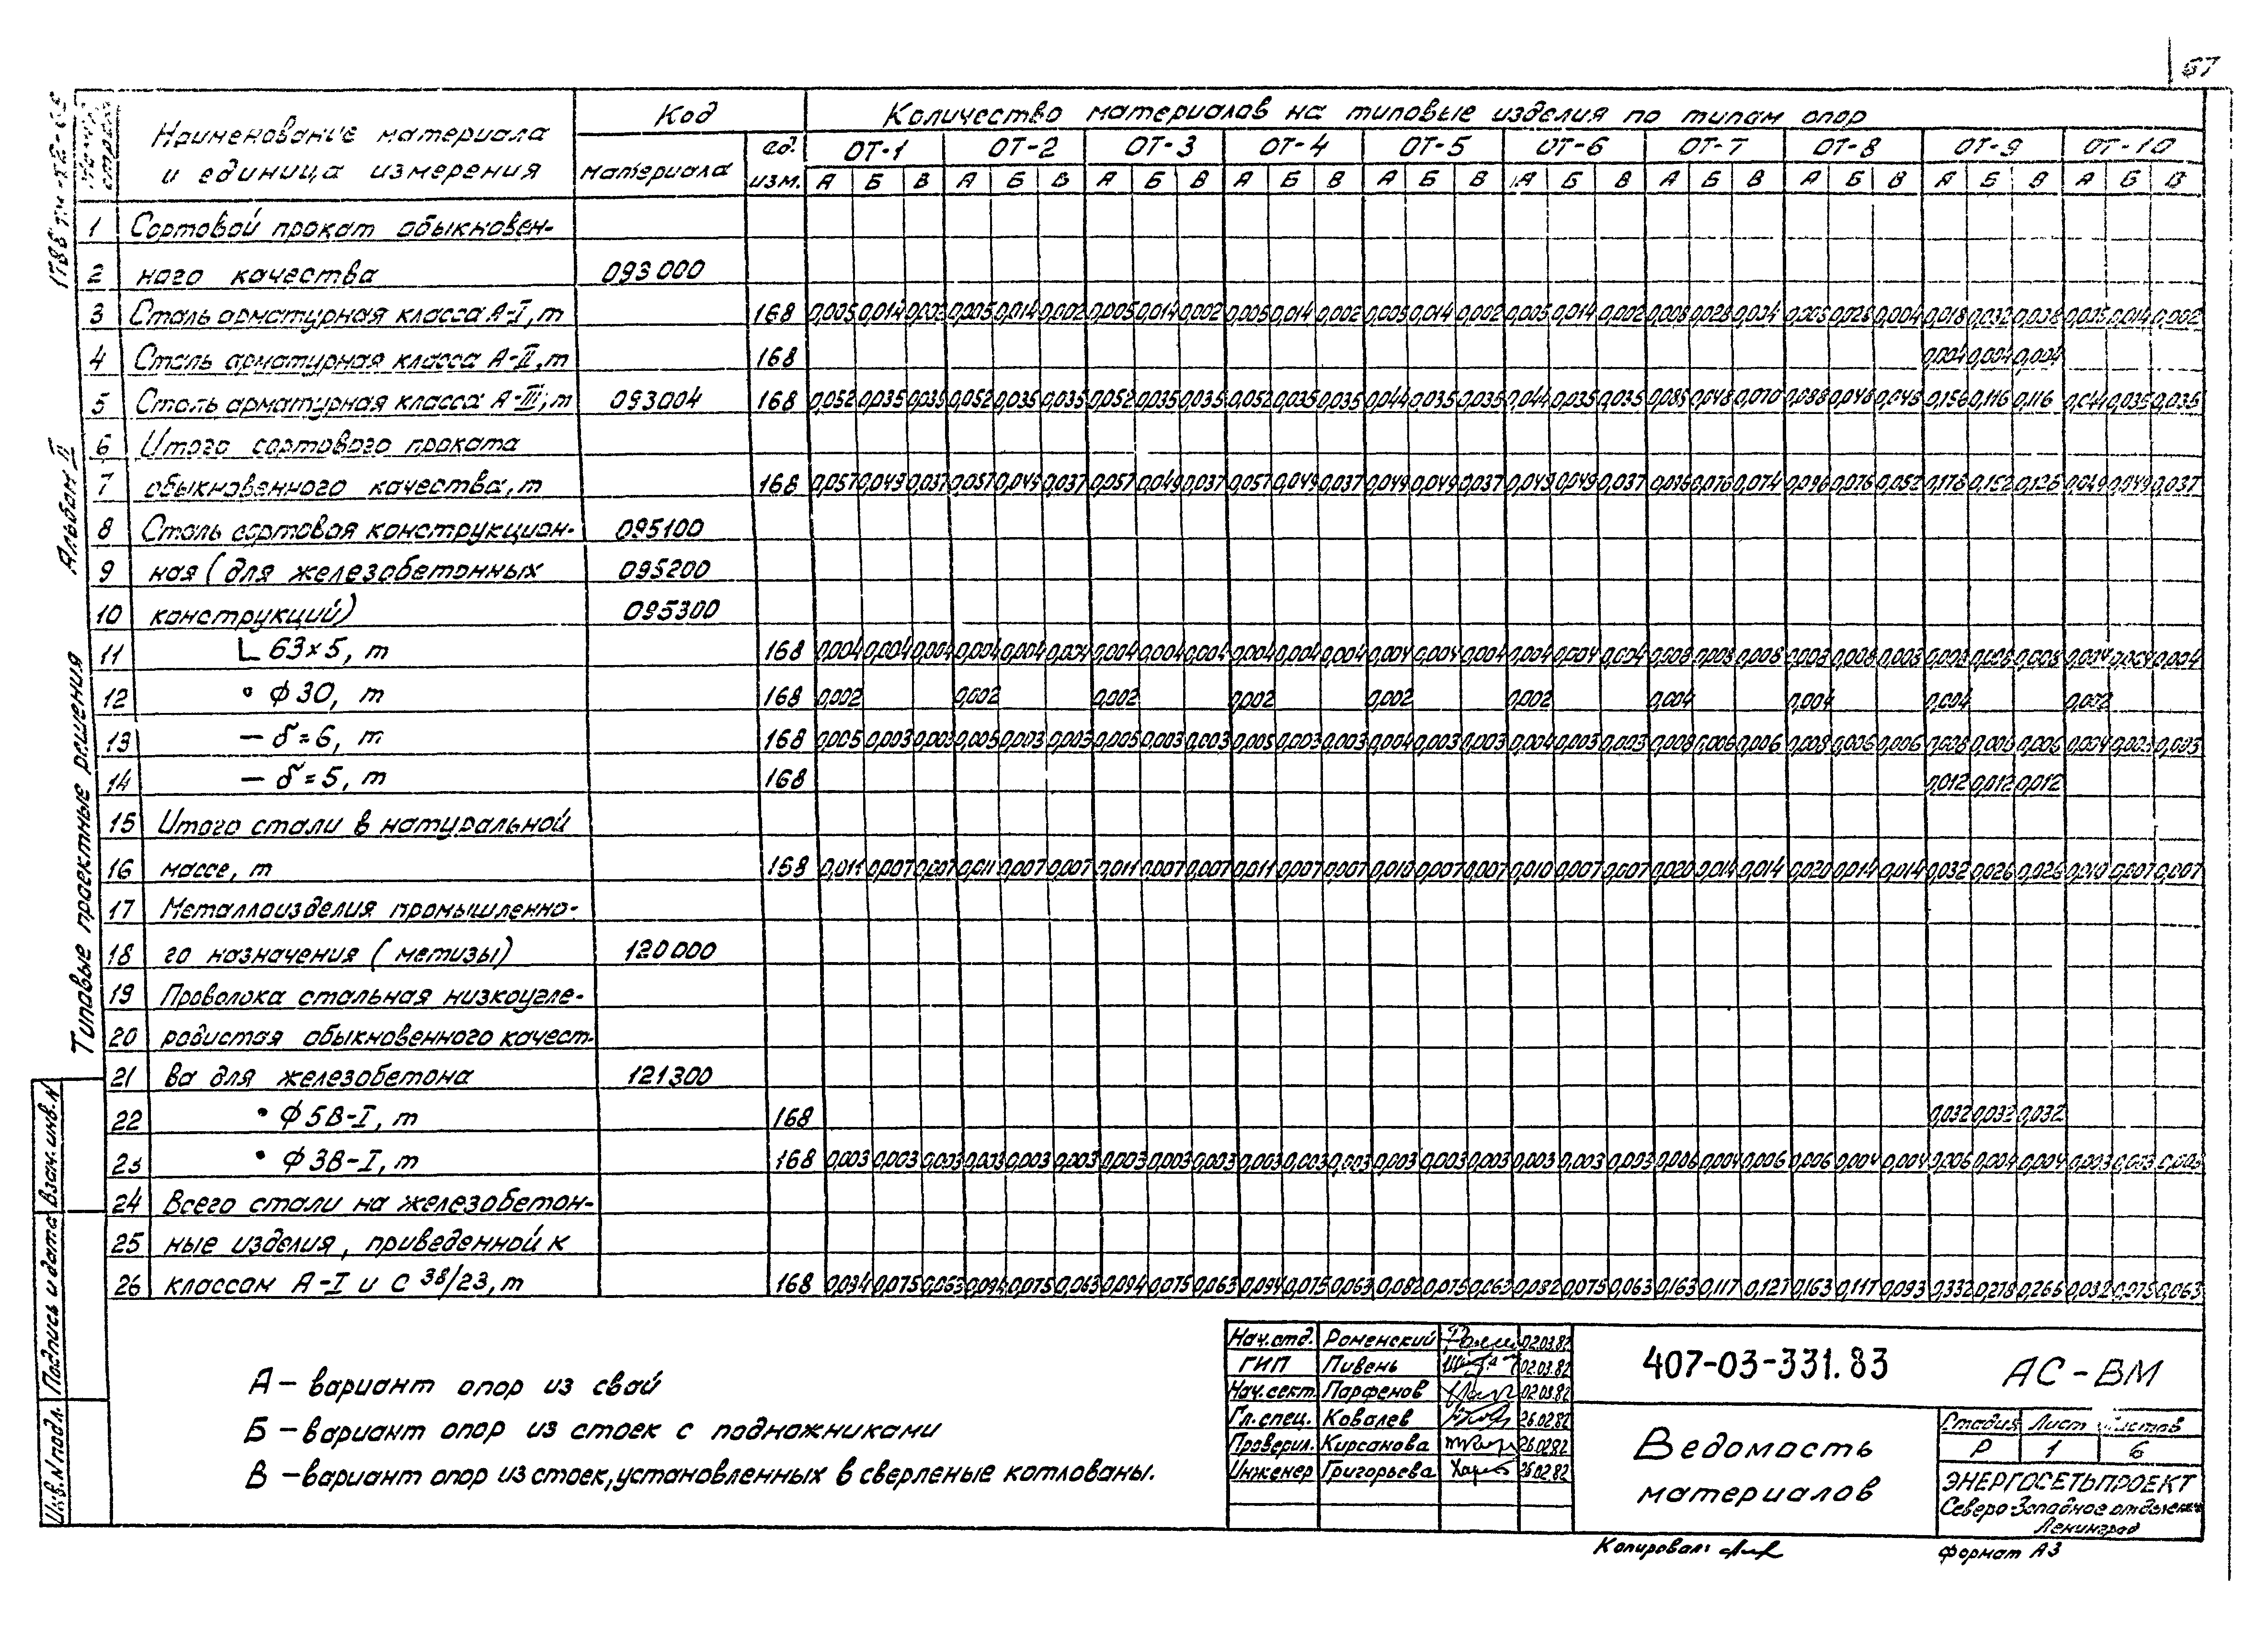 67
Наименование материала
и единица измерения
Код
материала
ед.
изм.
Количество материалов на типовые изделия по типам опор
ОТ-1 ОТ-2 ОТ-3 ОТ-4 ОТ-5 ОТ-6 ОТ-7 ОТ-8 ОТ-9 ОТ-10
А Б В А Б В А Б В А Б В А Б В А Б В А Б В А Б В А Б В А Б В
1 Сортовой прокат обыкновен-
2 ного качества 093000
3 Сталь арматурная класса А-I, т 168 0,005 0,014 0,002 0,005 0,014 0,002 0,005 0,014 0,002 0,005 0,014 0,002 0,005 0,014 0,002 0,005 0,014 0,002 0,008 0,028 0,004 0,018 0,032 0,005 0,014 0,002
4 Сталь арматурная класса А-II, т 168 0,004 0,004 0,004
5 Сталь арматурная класса А-III, т 093004 168 0,052 0,035 0,035 0,052 0,035 0,035 0,052 0,035 0,035 0,052 0,035 0,035 0,044 0,035 0,035 0,044 0,035 0,035 0,048 0,070 0,088 0,048 0,048 0,156 0,116 0,116 0,044 0,035 0,035
6 Итого сортового проката
7 обыкновенного качества, т 168 0,057 0,049 0,037 0,057 0,049 0,037 0,057 0,049 0,037 0,057 0,049 0,037 0,049 0,049 0,037 0,049 0,049 0,037 0,076 0,074 0,096 0,076 0,052 0,178 0,152 0,049 0,049 0,037
8 Сталь сортовая конструкцион- 095100
9 ная (для железобетонных 095200
10 конструкций) 095300
11 L 63×5, т 168 0,004 0,004 0,004 0,004 0,004 0,004 0,004 0,004 0,004 0,004 0,004 0,004 0,004 0,004 0,004 0,004 0,004 0,004 0,008 0,008 0,008 0,008 0,008 0,008 0,008 0,008 0,008 0,004 0,004 0,004
12 • ф 30, т 168 0,002 0,002 0,002 0,002 0,002 0,002 0,004 0,004 0,004 0,002
13 – δ=6, т 168 0,005 0,003 0,003 0,005 0,003 0,003 0,005 0,003 0,003 0,005 0,003 0,003 0,004 0,003 0,003 0,004 0,003 0,003 0,008 0,006 0,006 0,008 0,006 0,006 0,008 0,006 0,006 0,004 0,003 0,003
14 – δ=5, т 168 0,012 0,012 0,012
15 Итого стали в натуральной
16 массе, т 168 0,011 0,007 0,007 0,011 0,007 0,007 0,011 0,007 0,007 0,011 0,007 0,007 0,010 0,007 0,007 0,010 0,007 0,007 0,020 0,014 0,014 0,020 0,014 0,014 0,032 0,026 0,026 0,010 0,007 0,007
17 Металлоизделия промышленно-
18 го назначения (метизы) 120000
19 Проволока стальная низкоугле-
20 родистая обыкновенного качест-
21 ва для железобетона 121300
22 • ф 5В-I, т 168 0,032 0,032 0,032
23 • ф 3В-I, т 168 0,003 0,003 0,003 0,003 0,003 0,003 0,003 0,003 0,003 0,003 0,003 0,003 0,003 0,003 0,003 0,003 0,003 0,003 0,006 0,004 0,006 0,006 0,004 0,004 0,006 0,004 0,004 0,003 0,003 0,003
24 Всего стали на железобетон-
25 ные изделия, приведенной к
26 классам А-I и С 38/23, т 168 0,094 0,075 0,063 0,094 0,075 0,063 0,094 0,075 0,063 0,094 0,075 0,063 0,082 0,075 0,063 0,082 0,075 0,063 0,163 0,117 0,127 0,163 0,117 0,093 0,332 0,278 0,266 0,082 0,075 0,063
Типовые проектные решения Альбом II
Инв.N подл. Подпись и дата Взам. инв. N
А – вариант опор из свай
Б – вариант опор из стоек с подножниками
В – вариант опор из стоек, установленных в сверленые котлованы.
Нач.отд. Роменский 02.03.82
ГИП Пивень 02.03.82
Нач.сект. Парфенов 02.03.82
Гл.спец. Ковалев 26.02.82
Проверил. Кирсанова 26.02.82
Инженер Григорьева 26.02.82
407-03-331.83 АС-ВМ
Ведомость
материалов
Стадия Лист Листов
Р 1 6
ЭНЕРГОСЕТЬПРОЕКТ
Северо-Западное отделение
Ленинград
Копировал: Формат А3